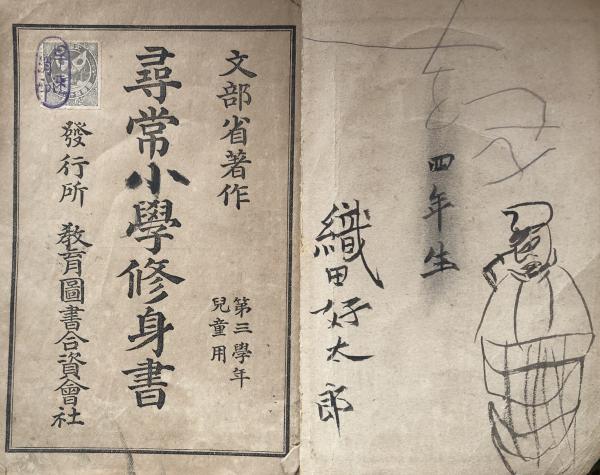 文部省著作
尋常小學修身書
第三學年
兒童用
發行所 敎育圖書合資會社
四年生
織田好太郎